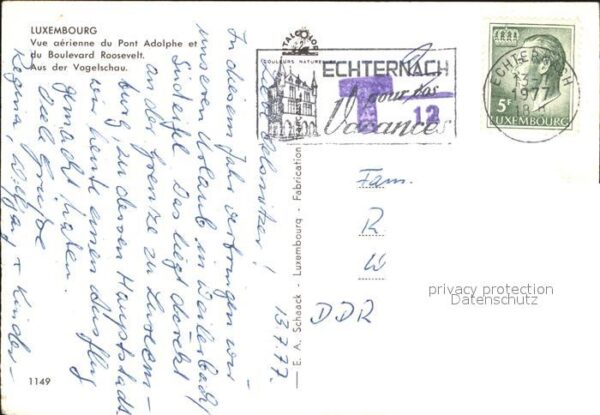 LUXEMBOURG
Vue aérienne du Pont Adolphe et
du Boulevard Roosevelt.
Aus der Vogelschau.
1149
E. A. Schaack - Luxembourg - Fabrication
COULEURS NATURE
ECHTERNACH
pour vos
Vacances
T
12
ECHTERNACH
13
1977
18
5F
LUXEMBOURG
13.7.77.
Liebe
In diesem Jahr verbringen wir
unseren Urlaub in Weilerbach
Südeifel. Das liegt direkt
an der Grenze zu Luxem-
burg, zu deren Hauptstadt
wir heute einen Ausflug
gemacht haben.
Viele Grüße
Regina, Wolfgang + Kinder
Fam.
R
W
DDR
privacy protection
Datenschutz